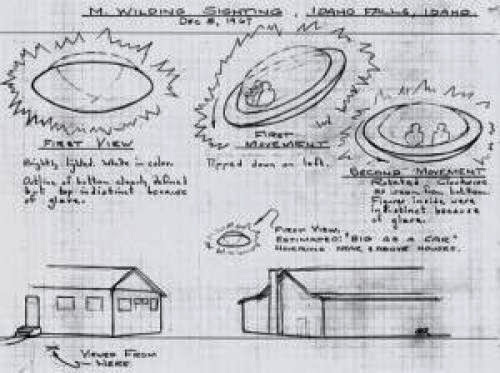 M. WILDING SIGHTING, IDAHO FALLS, IDAHO.
DEC 8, 1967
FIRST VIEW
Brightly lighted. White in color.
Outline of bottom clearly defined
but top indistinct because
of glare.
FIRST
MOVEMENT
Tipped down on left.
SECOND MOVEMENT
Rotated clockwise
as seen from bottom.
Figures inside were
indistinct because
of glare.
FIRST VIEW.
ESTIMATED: "BIG AS A CAR"
HOVERING NEAR & ABOVE HOUSES.
VIEWED FROM
HERE